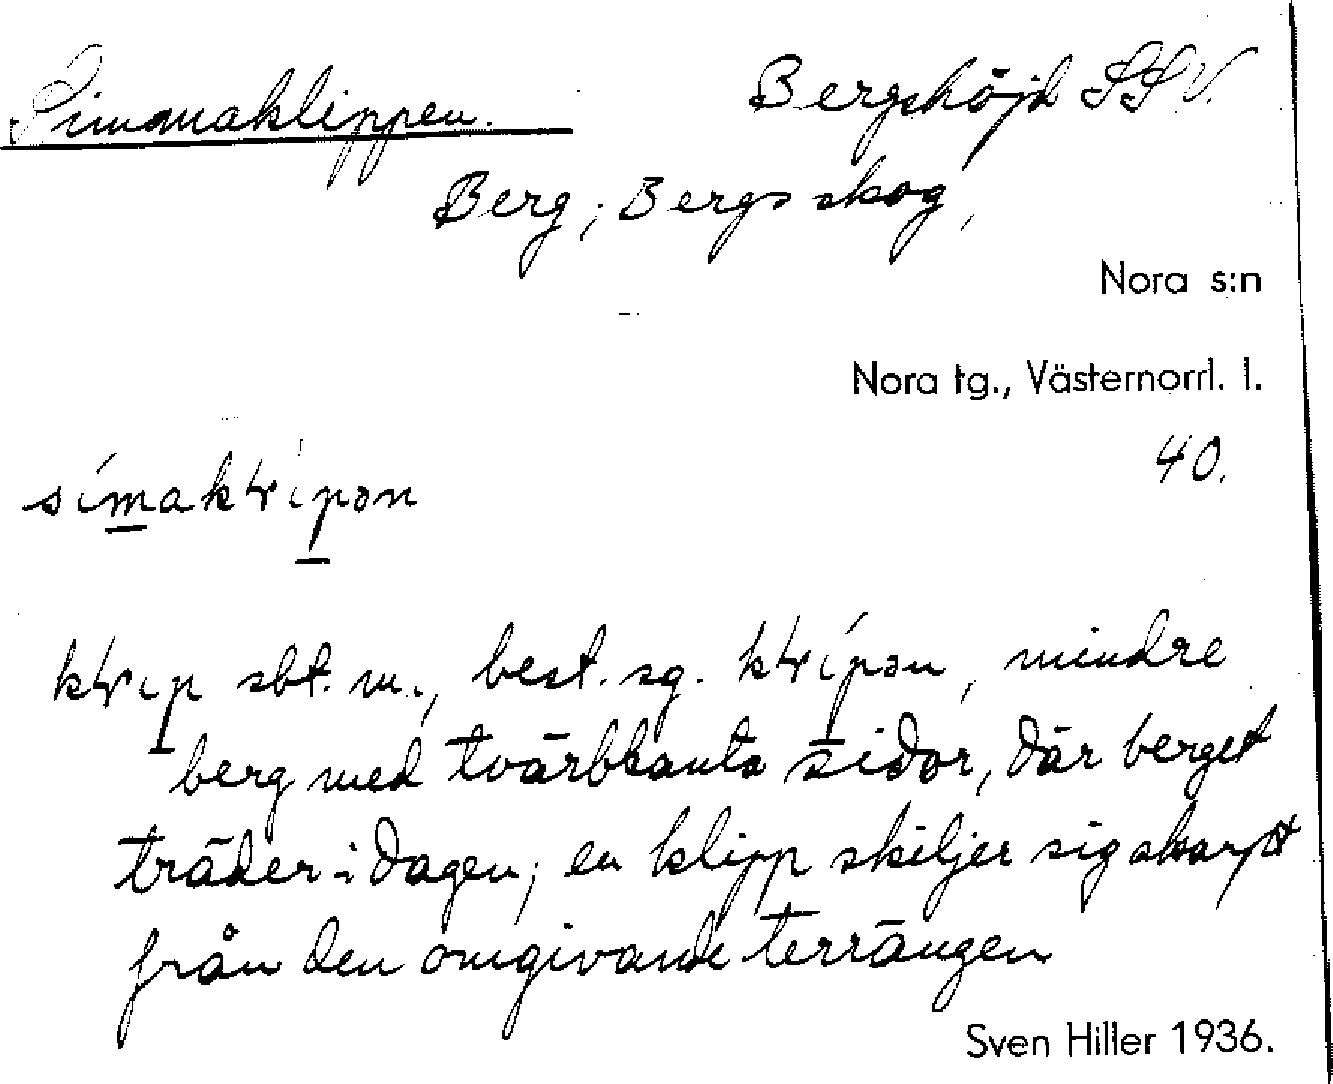 Simmaklippen.
Bergshöjd SSV.
Berg; Bergsskog,
Nora s:n
Nora tg., Västernorrl. l.
40.
simakłipən
kłip sbt. m., best. sg. kłipən, mindre
berg med tvärbranta sidor, där berget
träder i dagen; en klipp skiljer sig skarpt
från den omgivande terrängen
Sven Hiller 1936.